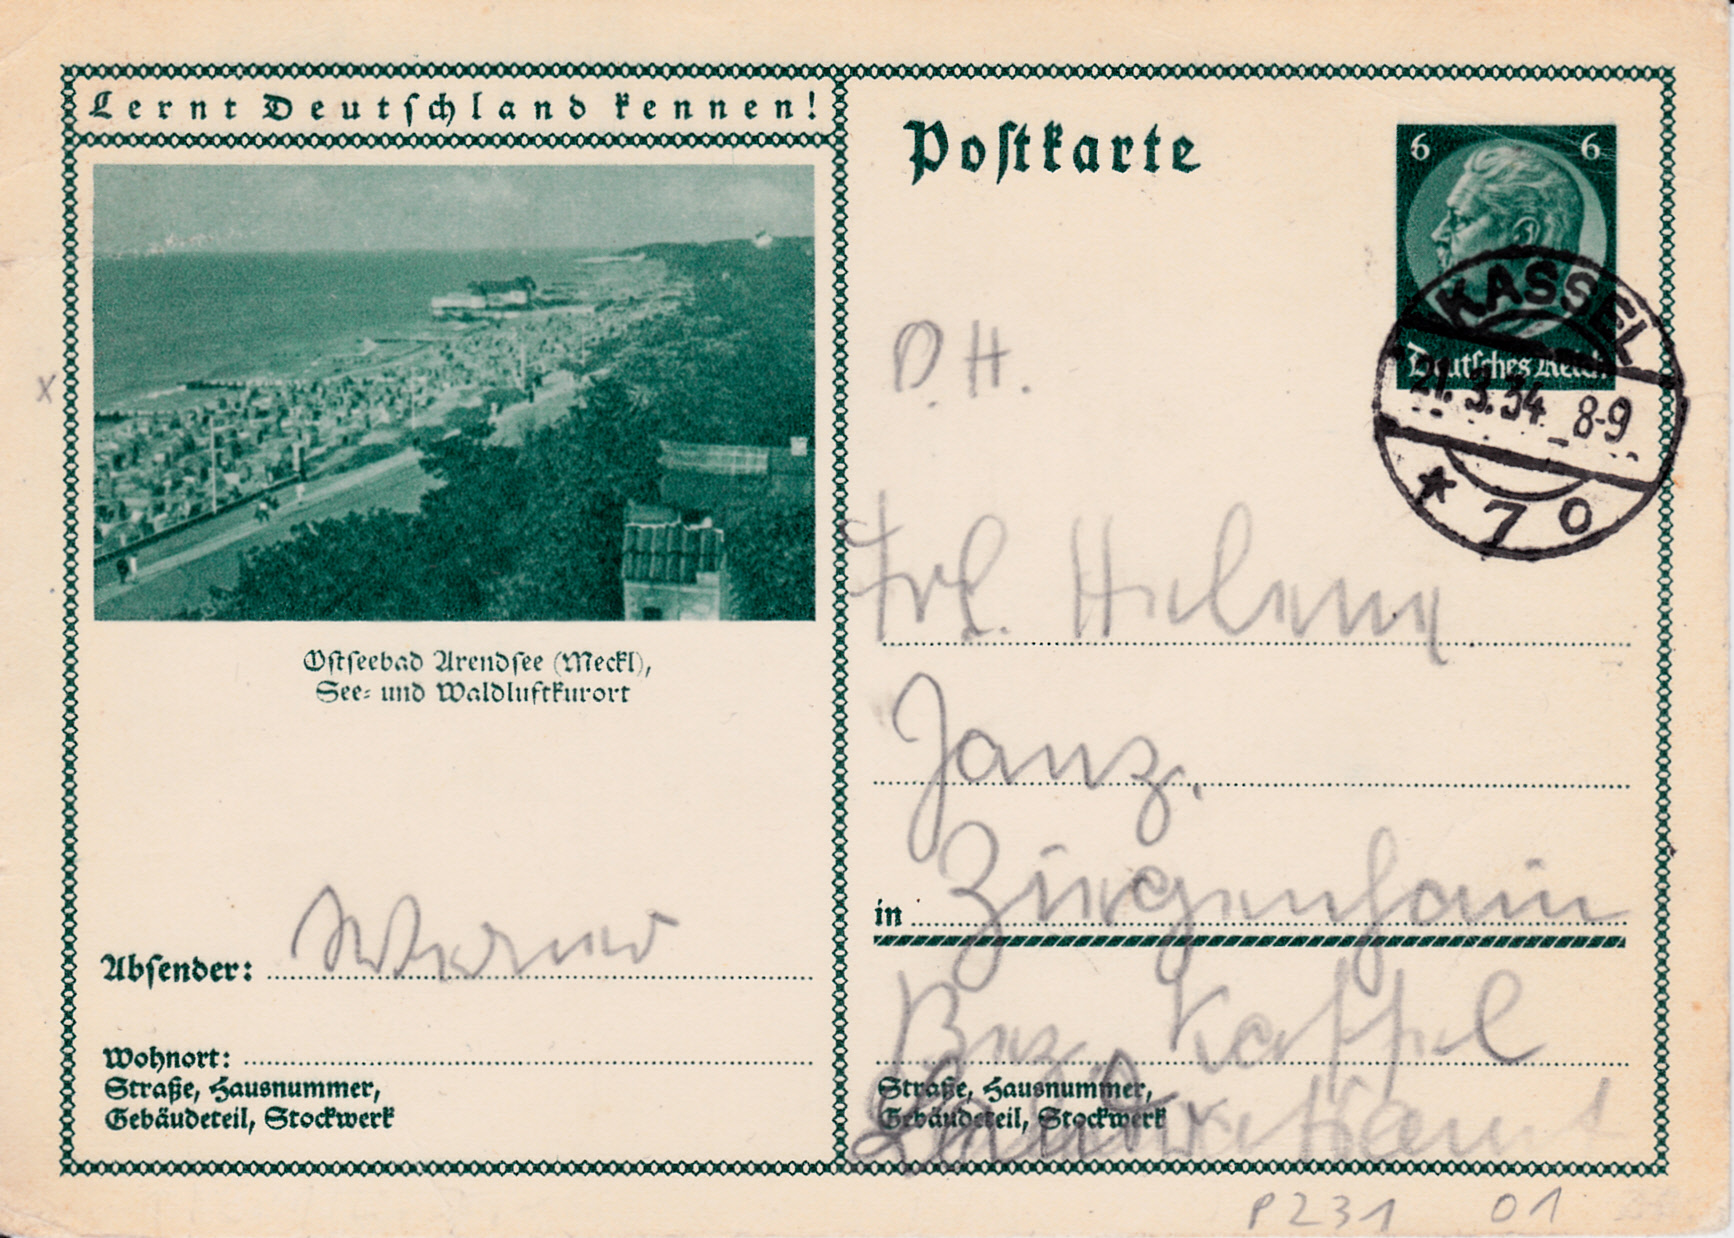 Lernt Deutschland kennen!
Ostseebad Arendsee (Meckl),
See- und Waldluftkurort
Absender: Werner
Wohnort:
Straße, Hausnummer,
Gebäudeteil, Stockwerk
Postkarte
6 6
Deutsches Reich
KASSEL
21.3.34 8-9
* 7 o
D. H.
Frl. Helene
Janz.
in Ziegenhain
Bez. Kassel
Straße, Hausnummer,
Gebäudeteil, Stockwerk
Landratsamt
P231 01
x